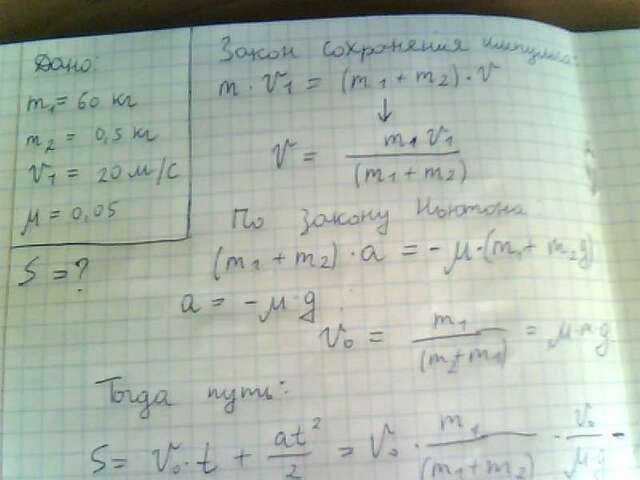 Дано:
m₁ = 60 кг
m₂ = 0,5 кг
v₁ = 20 м/с
μ = 0,05
S = ?
Закон сохранения импульса:
m · v₁ = (m₁ + m₂) · v
↓
v = m₁ v₁ / (m₁ + m₂)
По закону Ньютона
(m₁ + m₂) · a = - μ · (m₁ + m₂ g)
a = - μ · g
v₀ = m₁ / (m₂ + m₁) = μ g
Тогда путь:
S = v₀ · t + at² / 2 = v₀ · m₁ / (m₁ + m₂) · v₀ / μg -